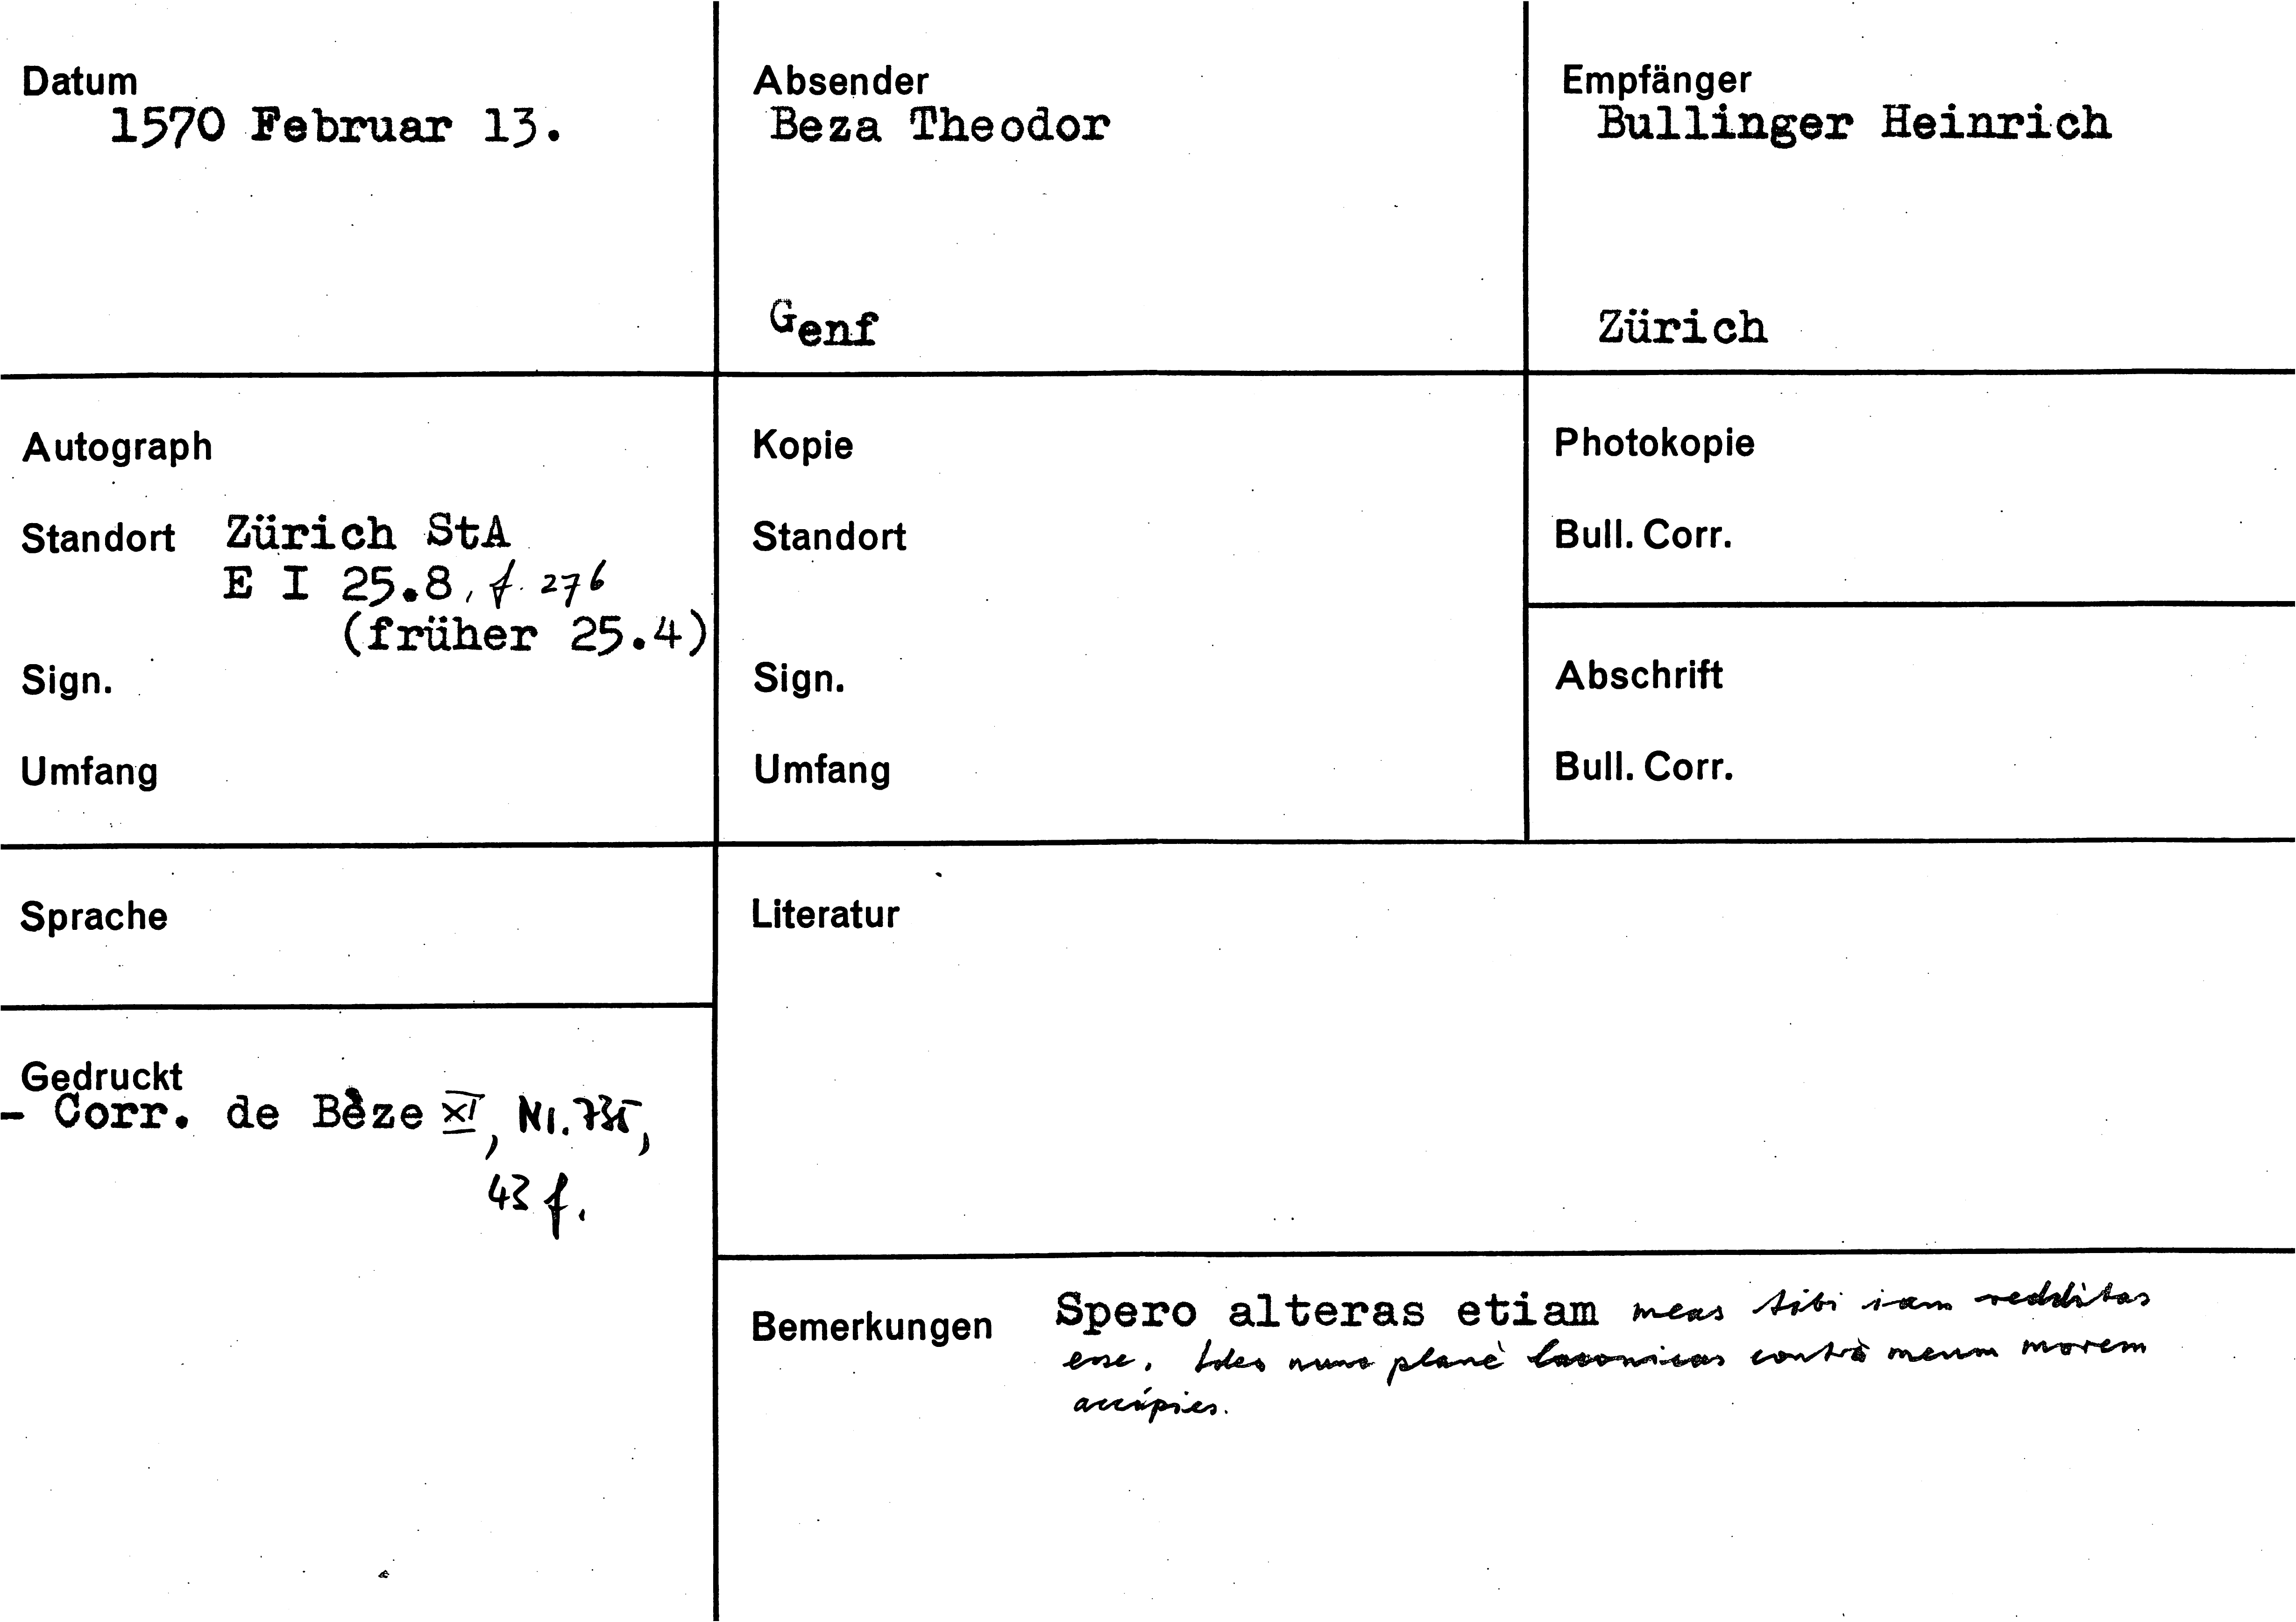 Datum
1570 Februar 13.
Absender
Beza Theodor
Genf
Empfänger
Bullinger Heinrich
Zürich
Autograph
Standort Zürich StA
E I 25.8, f. 276
(früher 25.4)
Sign.
Umfang
Kopie
Standort
Sign.
Umfang
Photokopie
Bull. Corr.
Abschrift
Bull. Corr.
Sprache
Gedruckt
- Corr. de Bèze XI, Nr. 735,
43 f.
Literatur
Bemerkungen Spero alteras etiam meas tibi iam redditas
esse. Ideo nunc planè laconicas contrà meum morem
accipies.